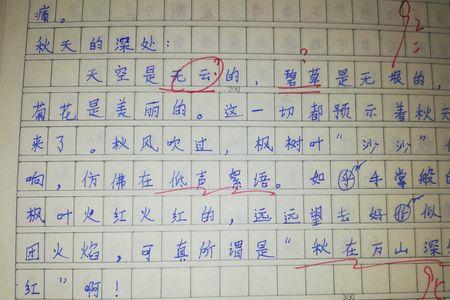 痛。
秋天的深处:
天空是无云的,碧草是无根的,
菊花是美丽的。这一切都预示着秋天
来了。秋风吹过,枫树叶“沙沙”
响,仿佛在低声絮语。如手掌般的
枫叶火红火红的,远远望去好似
团火焰,可真所谓是“秋在万山深
红”啊!